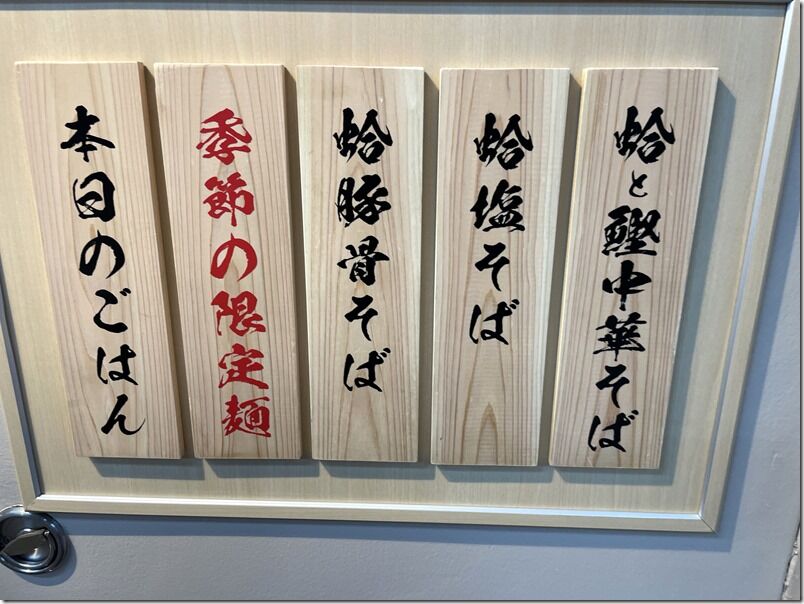 蛤と鰹中華そば
蛤塩そば
蛤豚骨そば
季節の限定麺
本日のごはん